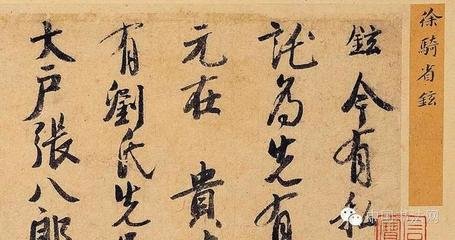 徐騎省鉉
鉉今有私
託為先有
元在 貴
有劉氏先
大戶張八郎